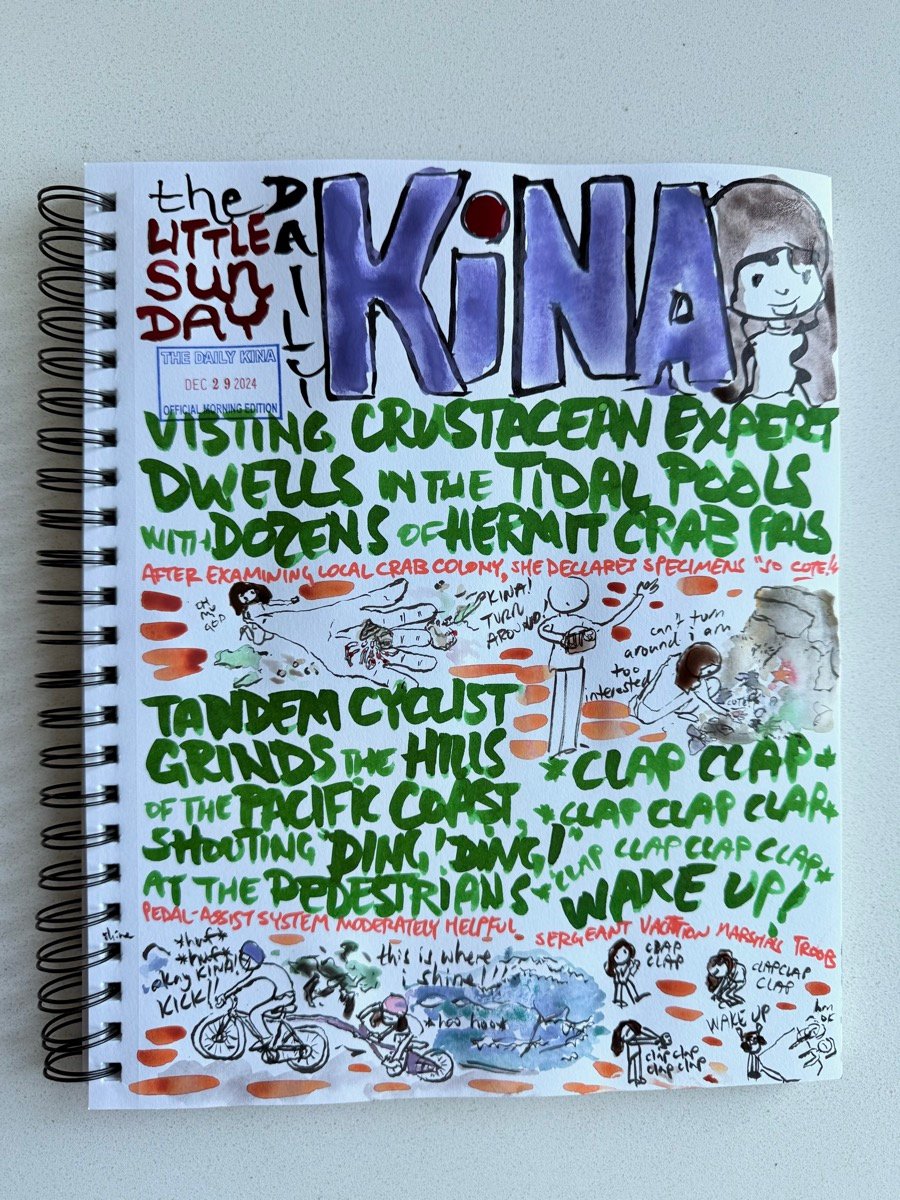 the
LITTLE
SUN
DAY
DAILY
KiNA
THE DAILY KINA
DEC 29 2024
OFFICIAL MORNING EDITION
VISTING CRUSTACEAN EXPERT
DWELLS IN THE TIDAL POOLS
WITH DOZENS OF HERMIT CRAB PALS
AFTER EXAMINING LOCAL CRAB COLONY, SHE DECLARES SPECIMENS "SO CUTE!"
KINA!
TURN
AROUND!
can't turn
around i am
too
interested
CUTE
TANDEM CYCLIST
GRINDS THE HILLS
OF THE PACIFIC COAST,
SHOUTING "DING! DING!"
AT THE PEDESTRIANS
PEDAL-ASSIST SYSTEM MODERATELY HELPFUL
*CLAP CLAP*
*CLAP CLAP CLAP*
*CLAP CLAP CLAP CLAP*
WAKE UP!
SERGEANT VACATION MARSHALS TROOPS
shine
*huf*
*huf*
okay KINA!!
KICK!!
this is where
i shine!!!
*hoo hoo*
CLAP
CLAP
CLAPCLAP
CLAP
clap clap
clap clap
WAKE UP